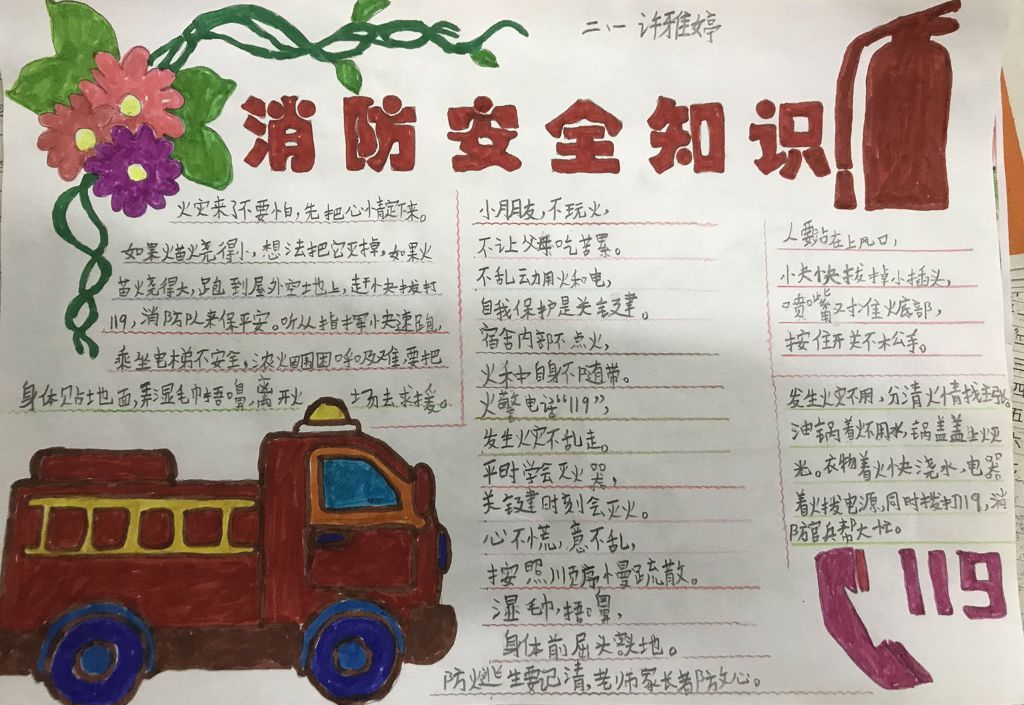 二、一 许雅婷
消防安全知识
火灾来了不要怕,先把心情定下来。
如果火苗烧得小,想法把它灭掉,如果火
苗火烧得大,跑到屋外空地上,赶快拨打
119,消防队来保平安。听从指挥快速跑,
乘坐电梯不安全,浓火围困呼吸难要把
身体贴地面,弄湿毛巾捂鼻,离开火 场去求援。
小朋友,不玩火,
不让父母吃苦累。
不乱动用火和电,
自我保护是关键。
宿舍内部不点火,
火种自身不随带。
火警电话“119”,
发生火灾不乱走。
平时学会灭火器,
关键时刻会灭火。
心不慌,意不乱,
按照顺序慢疏散。
湿毛巾,捂鼻,
身体前屈头靠地。
防火逃生要记清,老师家长都放心。
人要站在上风口,
小快快拔掉小插头,
喷嘴对准火底部,
按住开关不松手。
发生火灾不用,分清火情找主张。
油锅着火不用水,锅盖盖上火灭
光。衣物着火快浇水,电器
着火拨电源,同时拨打119,消
防官兵帮大忙。
119